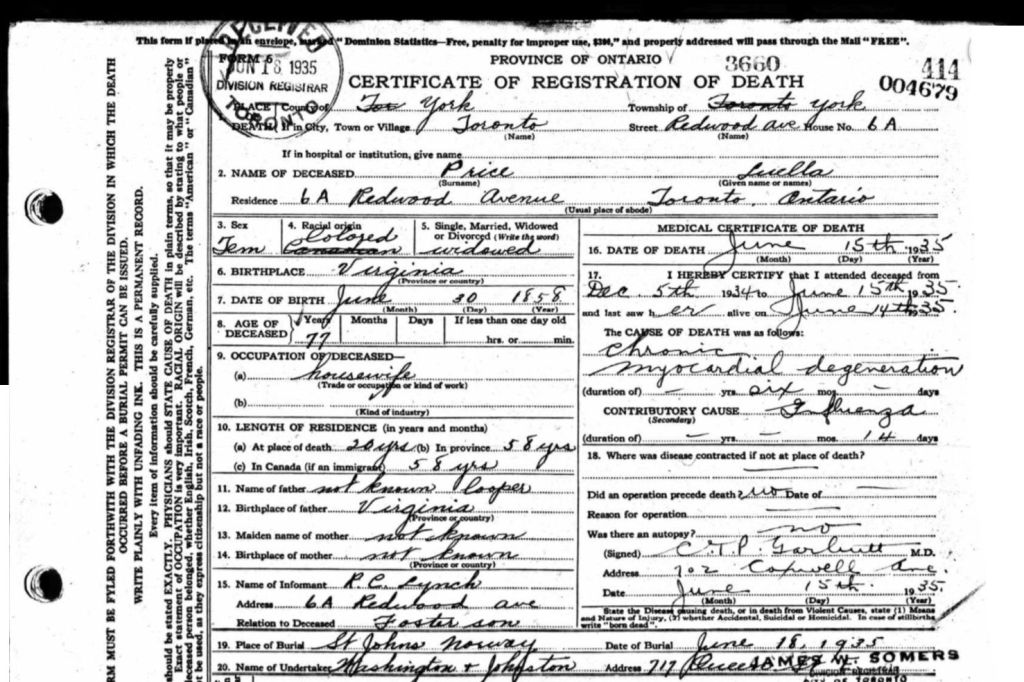 This form if placed in an envelope, marked "Dominion Statistics—Free, penalty for improper use, $300," and properly addressed will pass through the Mail "FREE".
RECEIVED
JUN 18 1935
DIVISION REGISTRAR
TORONTO
FORM 6
PROVINCE OF ONTARIO
3660
414
004679
CERTIFICATE OF REGISTRATION OF DEATH
PLACE OF DEATH County of York
Township of Toronto York
If in City, Town or Village Toronto (Name)
Street Redwood ave (Name) House No. 6A
If in hospital or institution, give name
2. NAME OF DECEASED Price (Surname) Luella (Given name or names)
Residence 6A Redwood Avenue Toronto, Ontario
(Usual place of abode)
3. Sex Fem
4. Racial origin Colored Canadian
5. Single, Married, Widowed or Divorced (Write the word) widowed
6. BIRTHPLACE Virginia
(Province or country)
7. DATE OF BIRTH June (Month) 30 (Day) 1858 (Year)
8. AGE OF DECEASED Years 77 Months Days If less than one day old hrs. or min.
9. OCCUPATION OF DECEASED—
(a) housewife
(Trade or occupation or kind of work)
(b)
(Kind of industry)
10. LENGTH OF RESIDENCE (in years and months)
(a) At place of death 20 yrs (b) In province 58 yrs
(c) In Canada (if an immigrant) 58 yrs
11. Name of father not known Cooper
12. Birthplace of father Virginia
(Province or country)
13. Maiden name of mother not known
14. Birthplace of mother not known
(Province or country)
15. Name of Informant R. C. Lynch
Address 6A Redwood ave
Relation to Deceased Foster son
MEDICAL CERTIFICATE OF DEATH
16. DATE OF DEATH June (Month) 15th (Day) 1935 (Year)
17. I HEREBY CERTIFY that I attended deceased from
Dec. 5th 1934 to June 15th 1935.
and last saw her alive on June 14th 1935.
The CAUSE OF DEATH was as follows:
Chronic
myocardial degeneration
(duration of) — yrs. six mos. — days
CONTRIBUTORY CAUSE Influenza
(Secondary)
(duration of) — yrs. — mos. 14 days
18. Where was disease contracted if not at place of death?
Did an operation precede death? no Date of —
Reason for operation —
Was there an autopsy? no
(Signed) C. T. P. Garbutt M.D.
Address 702 Ave.
Date June (Month) 15th (Day) 1935. (Year)
State the Disease causing death, or in death from Violent Causes, state (1) Means
and Nature of Injury, (2) whether Accidental, Suicidal or Homicidal. In case of stillbirths
write "born dead".
19. Place of Burial St Johns Norway Date of Burial June 18, 1935
20. Name of Undertaker Washington & Johnston Address 717 Queen
JAMES W. SOMERS
DIVISION REGISTRAR
CITY OF TORONTO
RM MUST BE FYLED FORTHWITH WITH THE DIVISION REGISTRAR OF THE DIVISION IN WHICH THE DEATH
OCCURRED BEFORE A BURIAL PERMIT CAN BE ISSUED.
WRITE PLAINLY WITH UNFADING INK. THIS IS A PERMANENT RECORD.
Every item of information should be carefully supplied.
should be stated EXACTLY. PHYSICIANS should STATE CAUSE OF DEATH in plain terms, so that it may be properly
Exact statement of OCCUPATION is very important. RACIAL ORIGIN will be described by stating to what people or
deceased person belonged, whether English, Irish, Scotch, French, German, etc. The terms "American" or "Canadian"
be used, as they express citizenship but not a race or people.